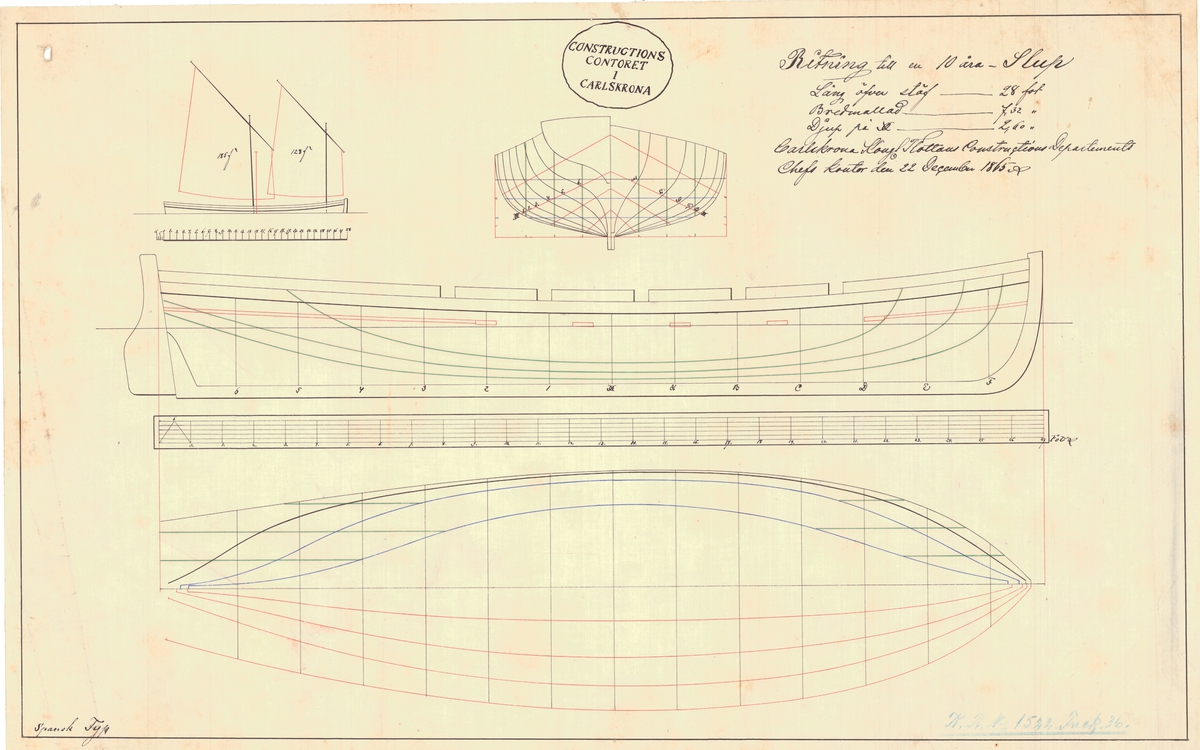 CONSTRUCTIONS
CONTORET
I
CARLSKRONA
Ritning till en 10 åra - Slup
Läng öfver stäf 28 fot
Bredmallad 7,32 "
Djup på 2,60 "
Carlskrona Kongl Flottans Constructions Departements
Chefs kontor den 22 December 1865
186 f²
128 f²
6 5 4 3 2 1 A B C D E F
Fot
Spansk Typ